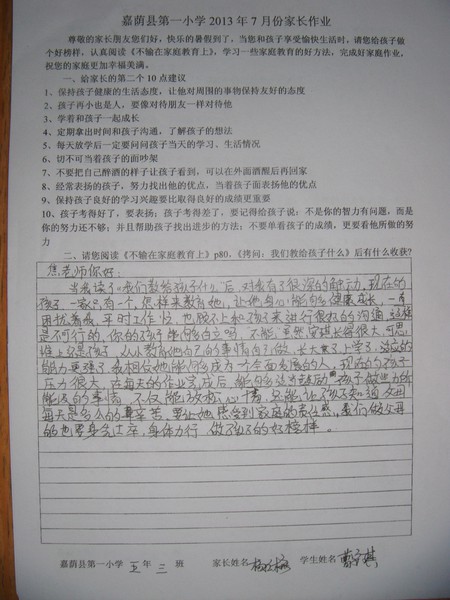 嘉荫县第一小学 2013 年 7 月份家长作业
尊敬的家长朋友您们好,快乐的暑假到了,当您和孩子享受愉快生活时,请您给孩子做
个好榜样,认真阅读《不输在家庭教育上》,学习一些家庭教育的好方法,完成好家庭作业,
祝您的家庭更加幸福美满。
一、给家长的第二个 10 点建议
1、保持孩子健康的生活态度,让他对周围的事物保持友好的态度
2、孩子再小也是人,要像对待朋友一样对待他
3、学着和孩子一起成长
4、定期拿出时间和孩子沟通,了解孩子的想法
5、每天放学后一定要问问孩子当天的学习、生活情况
6、切不可当着孩子的面吵架
7、不要把自己醉酒的样子让孩子看到,可以在外面酒醒后再回家
8、经常表扬的孩子,努力找出他的优点,当着孩子面表扬他的优点
9、保持孩子良好的学习兴趣要比取得良好的成绩更重要
10、孩子考得好了,要表扬;孩子考得差了,要记得给孩子说:不是你的智力有问题,而是
你的努力还不够;并且帮助孩子找出进步的方法;不要单看孩子的成绩,更要看他所做的努
力
二、请您阅读《不输在家庭教育上》p80,《拷问:我们教给孩子什么》后有什么收获?
老师你好:
当我读了《我们教给孩子什么》后,对我有了很深的触动,现在的
孩子一家只有一个,怎样来教育她,让他身心能够健康成长,一直
困扰着我,平时工作忙,也脱不上和孩子来进行很好的沟通,这样
是不可行的,你的孩子能够自立吗?不能,虽然安琪长得很大,可思
维上还是孩子,从小教育他自己的事情自己做,长大了上学了,独立的
能力更强了,我相信她能够成为一个全面发展的人,现在的孩子
压力很大,在每天的作业完成后,能够适当鼓励孩子做些力所
能及的事情,不仅能放松心情,还能让孩子知道父母
每天是多么的辛苦,要让她感受到家庭的责任感,我们做父母
的也要身先士卒,身体力行,做孩子的好榜样。
嘉荫县第一小学 五 年 三 班 家长姓名 学生姓名